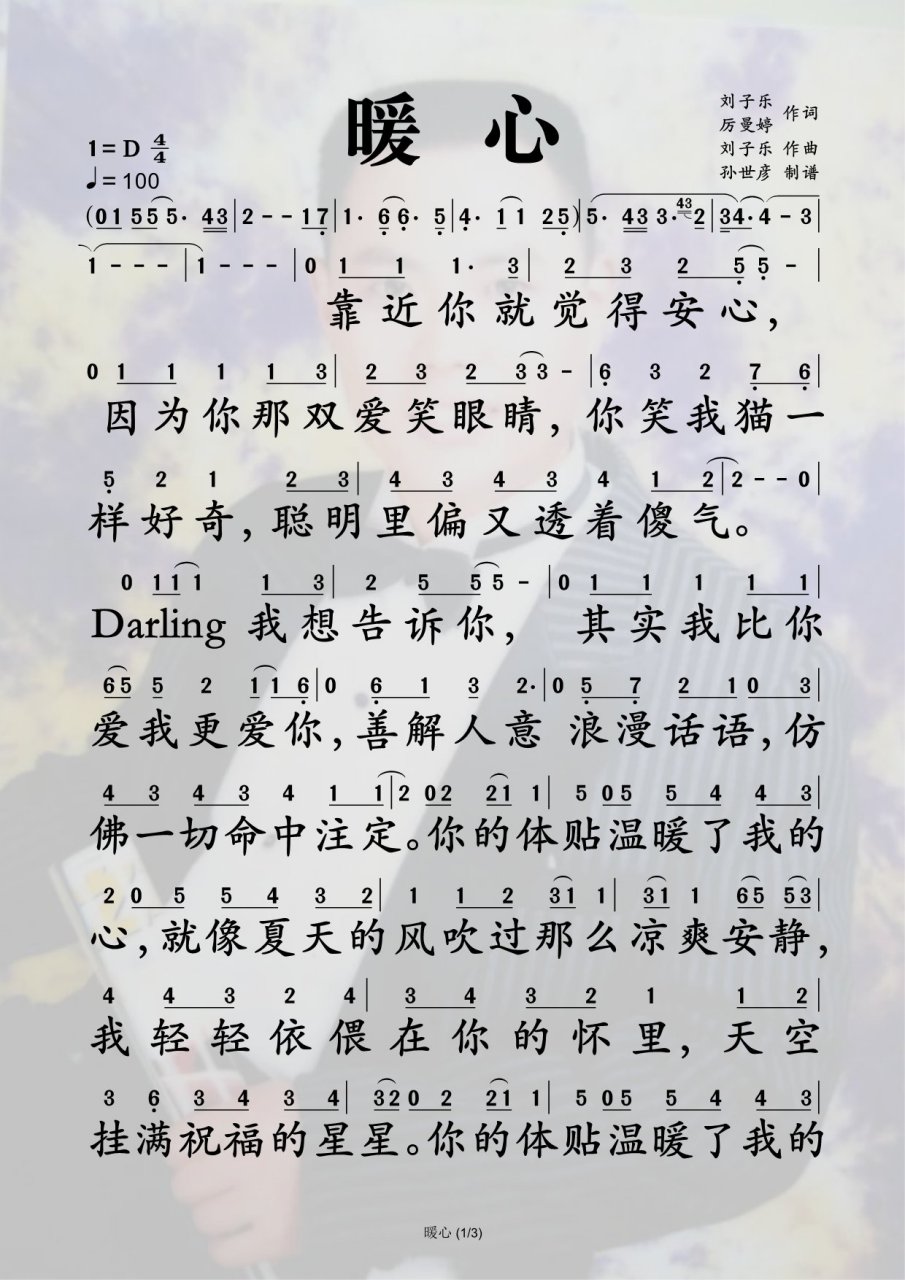 暖 心
刘子乐
厉曼婷 作词
刘子乐 作曲
孙世彦 制谱
1=D 4/4
♩=100
(01 555· 43|2--17|1· 66· 5|4· 11 25)|5· 43 3· 43 2|34·4-3|
1---|1---|0 1 1 1· 3|2 3 2 55-|
靠近你就觉得安心,
0 1 1 1 1 3|2 3 2 33-|6 3 2 7 6|
因为你那双爱笑眼睛,你笑我猫一
5 2 1 2 3|4 3 4 3 4 1 2|2--0|
样好奇,聪明里偏又透着傻气。
0 111 1 3|2 5 55-|0 1 1 1 1 1|
Darling 我想告诉你, 其实我比你
65 5 2 116|0 6 1 3 2·|0 5 7 2 10 3|
爱我更爱你,善解人意 浪漫话语,仿
4 3 4 3 4 1 1|2 02 21 1|5 05 5 4 4 3|
佛一切命中注定。你的体贴温暖了我的
2 0 5 5 4 3 2|1 1 2 31 1|31 1 65 53|
心,就像夏天的风吹过那么凉爽安静,
4 4 3 2 4|3 4 3 2 1 1 2|
我轻轻依偎在你的怀里,天空
3 6 3 4 3 4|320 2 21 1|5 05 5 4 4 3|
挂满祝福的星星。你的体贴温暖了我的
暖心 (1/3)